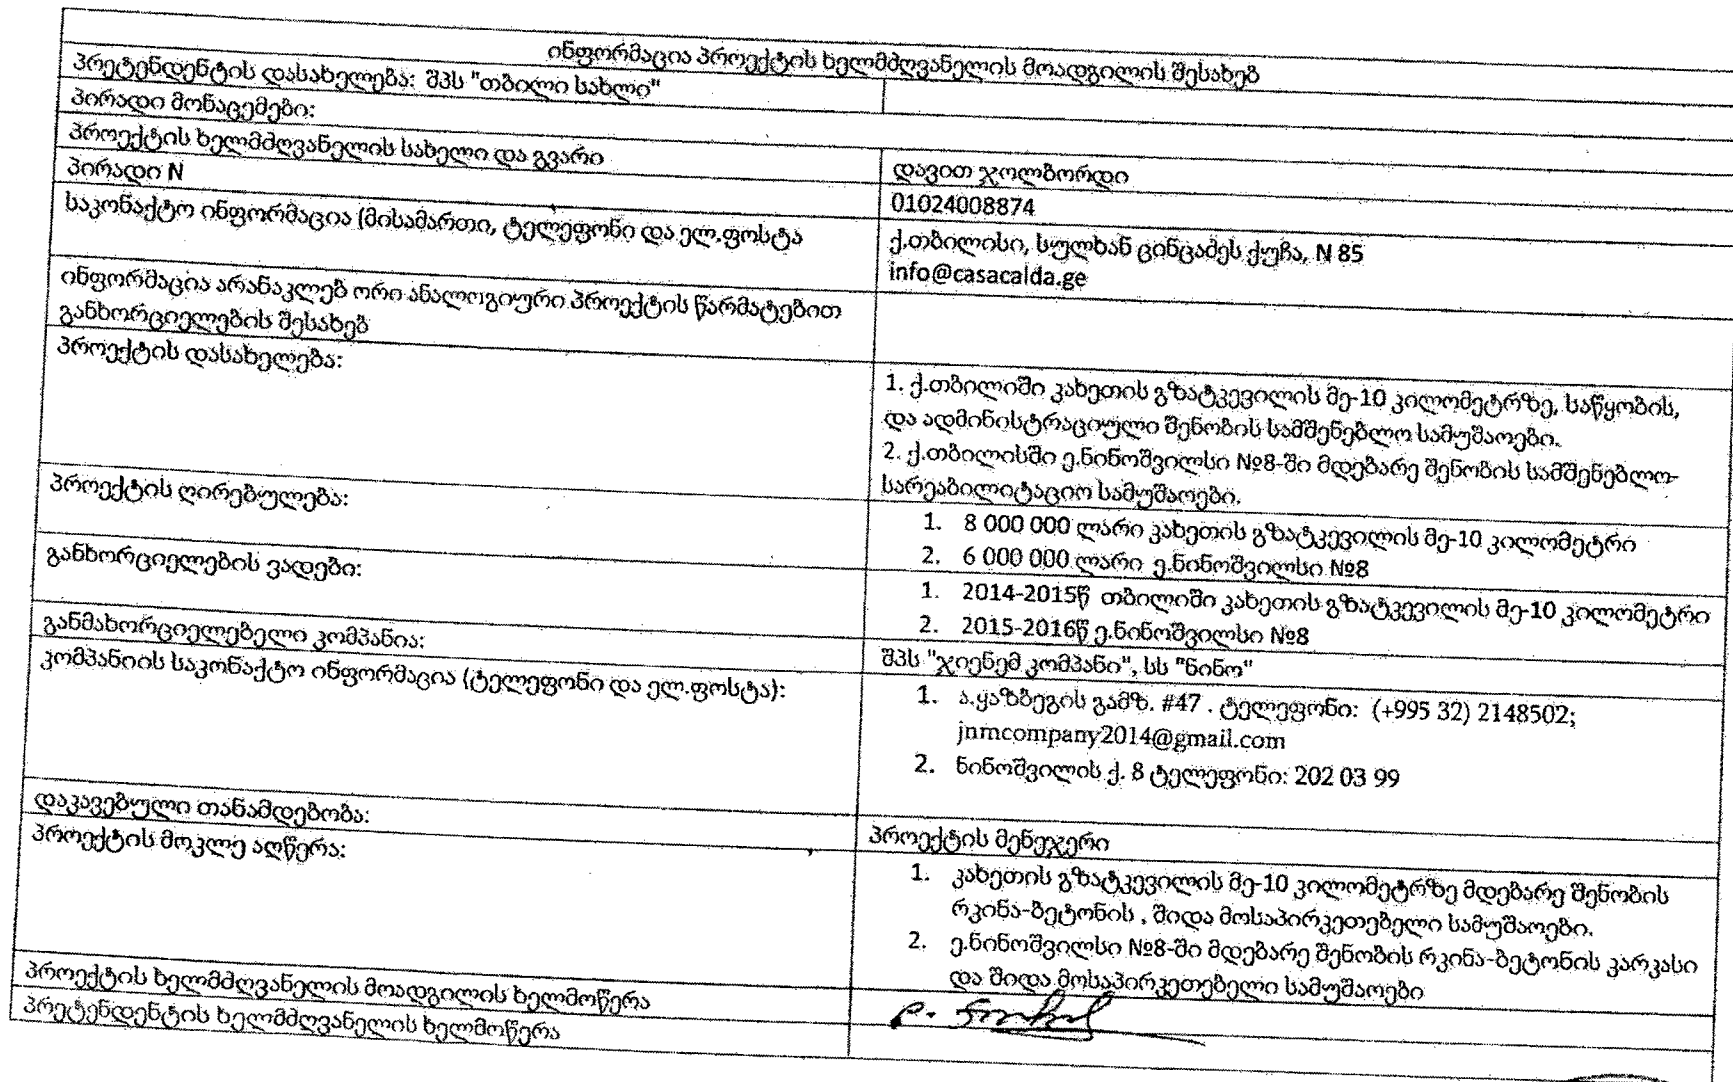 ინფორმაცია პროექტის ხელმძღვანელის მოადგილის შესახებ
პრეტენდენტის დასახელება: შპს "თბილი სახლი"
პირადი მონაცემები:
პროექტის ხელმძღვანელის სახელი და გვარი
დავით ჯოლბორდი
პირადი N
01024008874
საკონაქტო ინფორმაცია (მისამართი, ტელეფონი და ელ.ფოსტა
ქ.თბილისი, სულხან ცინცაძეს ქუჩა, N 85
info@casacalda.ge
ინფორმაცია არანაკლებ ორი ანალოგიური პროექტის წარმატებით
განხორციელების შესახებ
პროექტის დასახელება:
1. ქ.თბილიში კახეთის გზატკევილის მე-10 კილომეტრზე, საწყობის,
და ადმინისტრაციული შენობის სამშენებლო სამუშაოები.
2. ქ.თბილისში ე.ნინოშვილსი №8-ში მდებარე შენობის სამშენებლო-
სარეაბილიტაციო სამუშაოები.
პროექტის ღირებულება:
1. 8 000 000 ლარი კახეთის გზატკევილის მე-10 კილომეტრი
2. 6 000 000 ლარი ე.ნინოშვილსი №8
განხორციელების ვადები:
1. 2014-2015წ თბილიში კახეთის გზატკევილის მე-10 კილომეტრი
2. 2015-2016წ ე.ნინოშვილსი №8
განმახორციელებელი კომპანია:
შპს "ჯიენემ კომპანი", სს "ნინო"
კომპანიის საკონაქტო ინფორმაცია (ტელეფონი და ელ.ფოსტა):
1. ა.ყაზბეგის გამზ. #47 . ტელეფონი: (+995 32) 2148502;
jnmcompany2014@gmail.com
2. ნინოშვილის ქ. 8 ტელეფონი: 202 03 99
დაკავებული თანამდებობა:
პროექტის მენეჯერი
პროექტის მოკლე აღწერა:
1. კახეთის გზატკევილის მე-10 კილომეტრზე მდებარე შენობის
რკინა-ბეტონის , შიდა მოსაპირკეთებელი სამუშაოები.
2. ე.ნინოშვილსი №8-ში მდებარე შენობის რკინა-ბეტონის კარკასი
და შიდა მოსაპირკეთებელი სამუშაოები
პროექტის ხელმძღვანელის მოადგილის ხელმოწერა
პრეტენდენტის ხელმძღვანელის ხელმოწერა